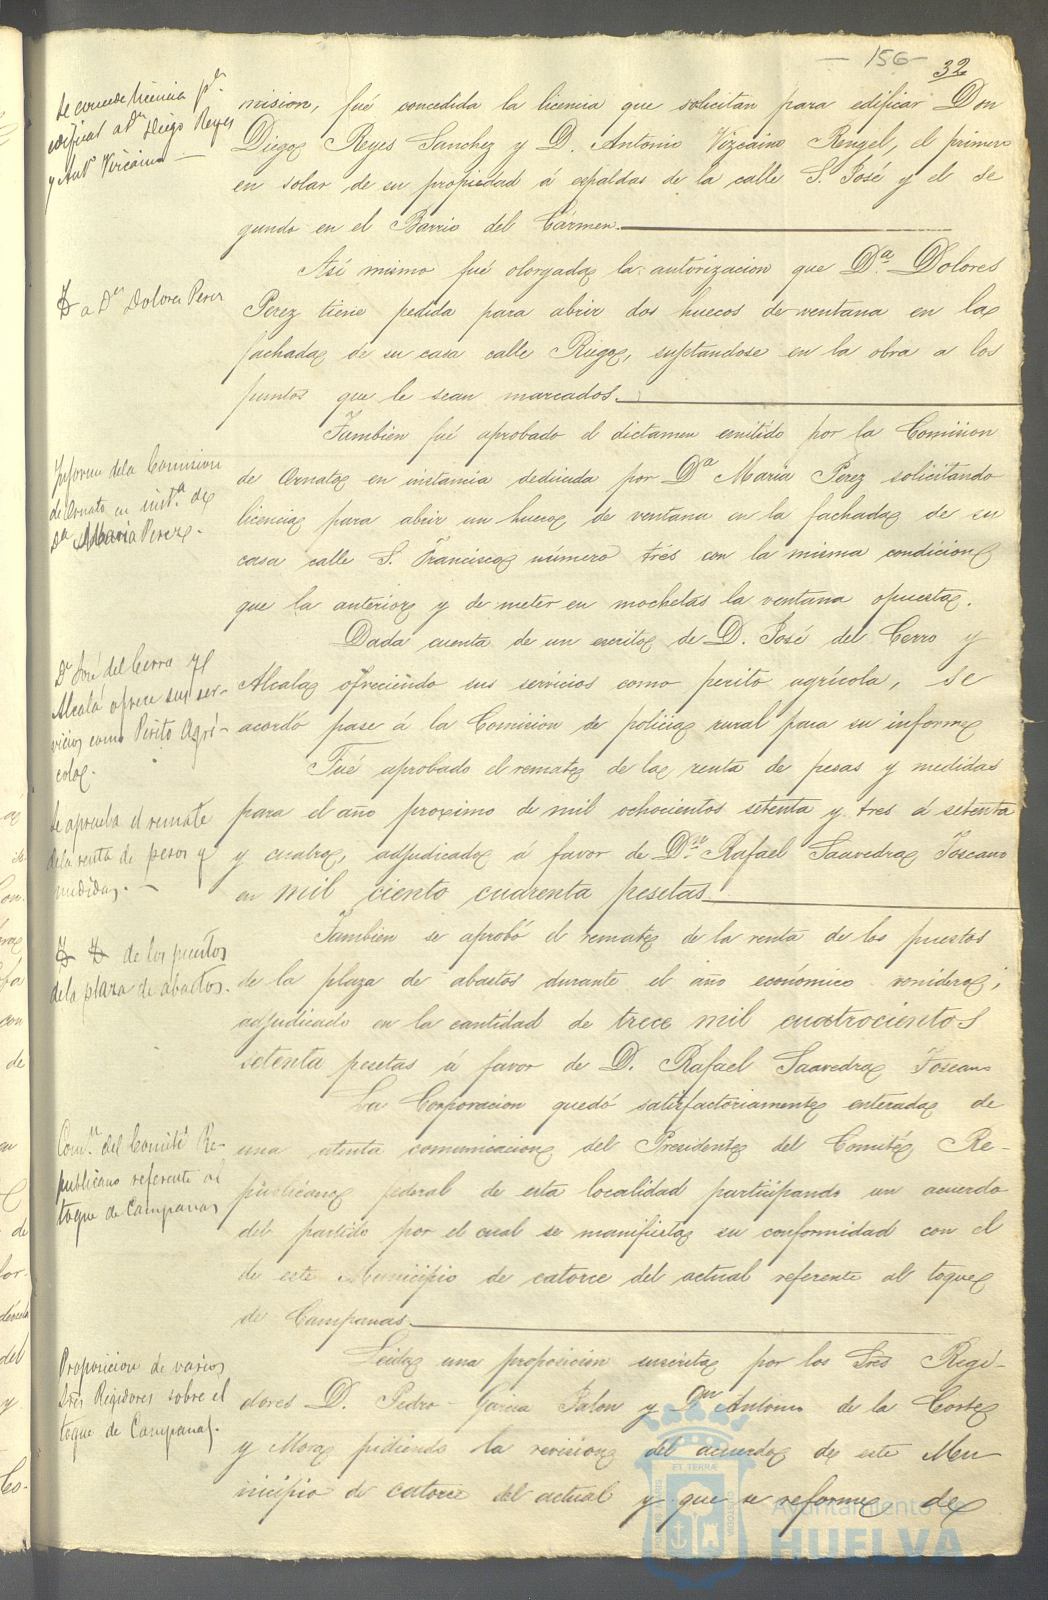 — 156 —
32
Se concede licencia pa
edificar a Dn Diego Reyes
y Antº Vizcaino —
mision, fué concedida la licencia que solicitan para edificar Don
Diego Reyes Sanchez y D. Antonio Vizcaino Rengel, el primero
en solar de su propiedad á espaldas de la calle S. José y el se
gundo en el Barrio del Cármen.
Id a Dña Dolores Perez
Así mismo fué otorgada la autorizacion que Dª Dolores
Perez tiene pedida para abrir dos huecos de ventana en la
fachada de su casa calle Riego, sujetandose en la obra a los
puntos que le sean marcados.
Informe de la Comision
de Ornato en instª de
Dª Maria Perez.
Tambien fué aprobado el dictamen emitido por la Comision
de Ornato en instancia deducida por Dª Maria Perez solicitando
licencia para abrir un hueco de ventana en la fachada de su
casa calle S. Francisco número trés con la misma condicion
que la anterior y de meter en mochetas la ventana opuesta.
Dn José del Cerro y
Alcalá ofrece sus ser-
vicios como Perito Agrí-
cola.
Dada cuenta de un escrito de D. José del Cerro y
Alcala ofreciendo sus servicios como perito agrícola, se
acordó pase á la Comision de policia rural para su informe
Se aprueba el remate
de la renta de pesos y
medidas. —
Fué aprobado el remate de la renta de pesas y medidas
para el año proximo de mil ochocientos setenta y tres á setenta
y cuatro, adjudicado á favor de Dn Rafael Saavedra Toscano
en mil ciento cuarenta pesetas.
Id Id de los puestos
de la plaza de abastos.
Tambien se aprobó el remate de la renta de los puestos
de la plaza de abastos durante el año económico venidero,
adjudicado en la cantidad de trece mil cuatrocientos
setenta pesetas á favor de D. Rafael Saavedra Toscano
Comn del Comité Re-
publicano referente al
toque de Campanas
La Corporacion quedó satisfactoriamente enterada de
una atenta comunicacion del Presidente del Comité Re-
publicano federal de esta localidad participando un acuerdo
del partido por el cual se manifiesta su conformidad con el
de este Municipio de catorce del actual referente al toque
de Campanas.
Proposicion de varios
Sres Regidores sobre el
toque de Campanas.
Leida una proposicion suscrita por los Sres Regi-
dores D. Pedro Garcia Jalon y Dn Antonio de la Corte
y Mora pidiendo la revision del acuerdo de este Mu
nicipio de catorce del actual y que se reforme de
Ayuntamiento de
HUELVA